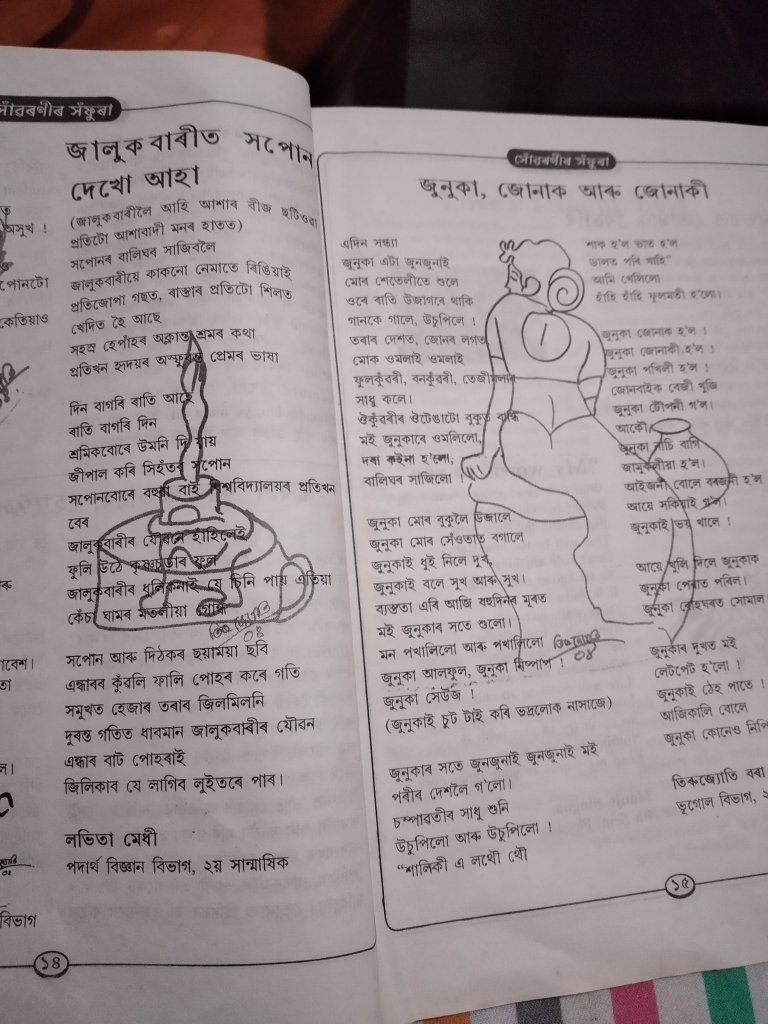 সোঁৱৰণীৰ সঁফুৰা
জালুকবাৰীত সপোন
দেখো আহা
(জালুকবাৰীলৈ আহি আশাৰ বীজ ছটিওৱা
প্ৰতিটো আশাবাদী মনৰ হাতত)
সপোনৰ বালিঘৰ সাজিবলৈ
জালুকবাৰীয়ে কাকনো নেমাতে ৰিঙিয়াই
প্ৰতিজোপা গছত, ৰাস্তাৰ প্ৰতিটো শিলত
খোদিত হৈ আছে
সহস্ৰ হেপাঁহৰ অক্লান্ত শ্ৰমৰ কথা
প্ৰতিখন হৃদয়ৰ অস্ফুৰন্ত প্ৰেমৰ ভাষা
দিন বাগৰি ৰাতি আহে
ৰাতি বাগৰি দিন
শ্ৰমিকবোৰে উমনি দি যায়
জীপাল কৰি সিহঁতৰ সপোন
সপোনবোৰে বগুৱা বাই বিশ্ববিদ্যালয়ৰ প্ৰতিখন
বেৰ
জালুকবাৰীৰ যৌৱনে হাঁহিলেই
ফুলি উঠে কৃষ্ণচূড়াৰ ফুল
জালুকবাৰীৰ ধূলিকনাই যে চিনি পায় এতিয়া
কেঁচা ঘামৰ মতলীয়া গোন্ধ
08
সপোন আৰু দিঠকৰ ছয়াময়া ছবি
এন্ধাৰৰ কুঁৱলি ফালি পোহৰ কৰে গতি
সমুখত হেজাৰ তৰাৰ জিলমিলনি
দুৰন্ত গতিত ধাবমান জালুকবাৰীৰ যৌৱন
এন্ধাৰ বাট পোহৰাই
জিলিকাব যে লাগিব লুইতৰে পাৰ।
লভিতা মেধী
পদাৰ্থ বিজ্ঞান বিভাগ, ২য় সান্মাষিক
১৪
সোঁৱৰণীৰ সঁফুৰা
জুনুকা, জোনাক আৰু জোনাকী
এদিন সন্ধ্যা
জুনুকা এটা জুনজুনাই
মোৰ শেতেলীতে শুলে
ওৰে ৰাতি উজাগৰে থাকি
গানকে গালে, উচুপিলে !
তৰাৰ দেশত, জোনৰ লগত
মোক ওমলাই ওমলাই
ফুলকুঁৱৰী, বনকুঁৱৰী, তেজীমলাৰ
সাধু কলে।
ওকুঁৱৰীৰ ওটেঙাটো বুকুত বান্ধি
মই জুনুকাৰে ওমলিলো,
দৰা কইনা হ'লো;
বালিঘৰ সাজিলো !
জুনুকা মোৰ বুকুলৈ উজালে
জুনুকা মোৰ সেঁওতাত বগালে
জুনুকাই ধুই নিলে দুখ
জুনুকাই বলে সুখ আৰু সুখ।
ব্যস্ততা এৰি আজি বহুদিনৰ মূৰত
মই জুনুকাৰ সতে শুলো।
মন পখালিলো আৰু পখালিলো
জুনুকা আলফুল, জুনুকা নিষ্পাপ !
08
জুনুকা সেউজ !
(জুনুকাই চুট টাই কৰি ভদ্ৰলোক নাসাজে)
জুনুকাৰ সতে জুনজুনাই জুনজুনাই মই
পৰীৰ দেশলৈ গ'লো।
চম্পাৱতীৰ সাধু শুনি
উচুপিলো আৰু উচুপিলো !
“শালিকী এ লখৌ থৌ
শাক হ'ল ভাত হ'ল
ডালত পৰি খাহি”
আমি খেলিলো
হাঁহি হাঁহি ফুলমতী হ'লো।
জুনুকা জোনাক হ'ল !
জুনুকা জোনাকী হ'ল !
জুনুকা পখিলী হ'ল !
জোনবাইক বেজী খুজি
জুনুকা টোপনী গ'ল।
আকৌ
জুনুকা নাচি বাগি
জামুকলীয়া হ'ল।
আইজনী বোলে বৰজনী হ'ল
আয়ে সকিয়াই গ'ল।
জুনুকাই ভয় খালে !
আয়ে খুলি দিলে জুনুকাক
জুনুকা পেৰাত পৰিল।
জুনুকা
জুনুকাৰ দুখত মই
লেটপেট হ'লো !
জুনুকাই ঠেহ পাতে !
আজিকালি বোলে
জুনুকা কোনেও
তিৰুজ্যোতি বৰা
ভূগোল বিভাগ,
১৫